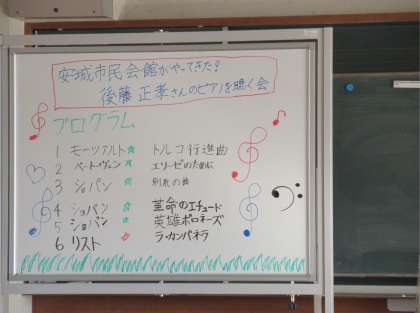 安城市民会館がやってきた!
後藤正孝さんのピアノを聴く会
プログラム
1 モーツァルト トルコ行進曲
2 ベートーヴェン エリーゼのために
3 ショパン 別れの曲
4 ショパン 革命のエチュード
5 ショパン 英雄ポロネーズ
6 リスト ラ・カンパネラ